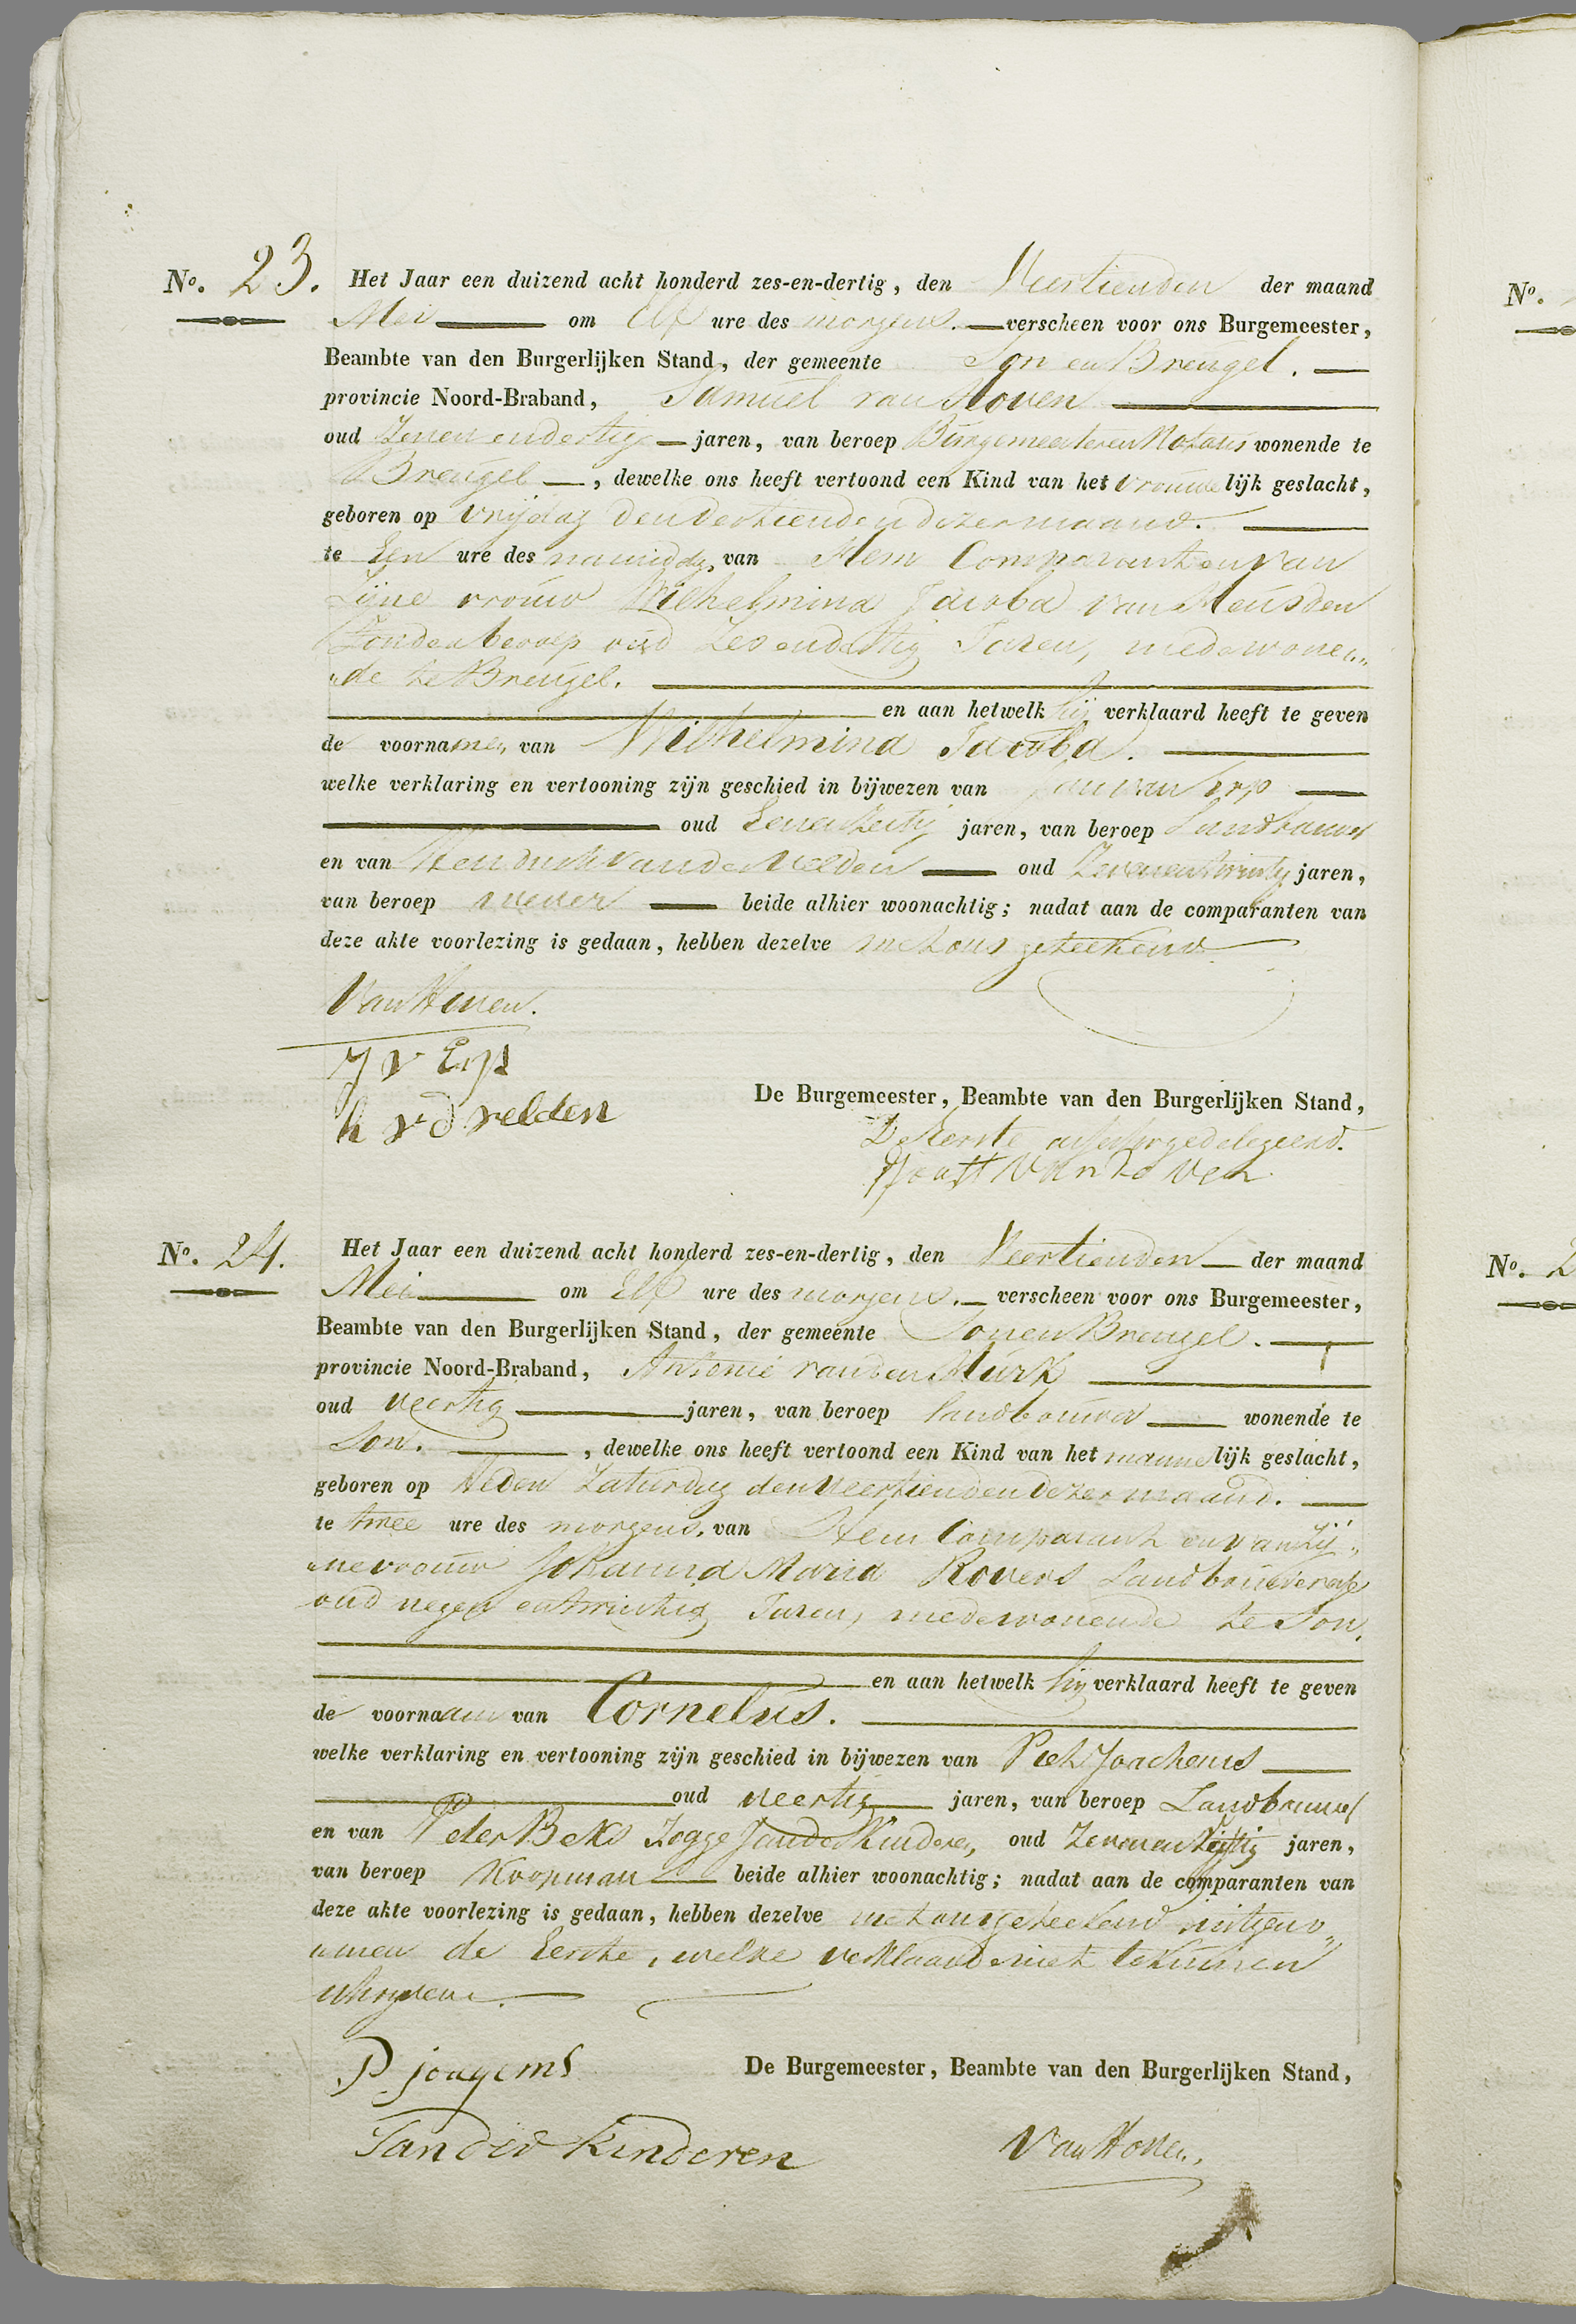 No. 23. Het Jaar een duizend acht honderd zes-en-dertig, den Veertienden der maand
Mei om Elf ure des morgens. verscheen voor ons Burgemeester,
Beambte van den Burgerlijken Stand, der gemeente Son en Breugel.
provincie Noord-Braband, Samuel van Hoven
oud Zeven endertig jaren, van beroep Burgemeester en Notaris wonende te
Breugel, dewelke ons heeft vertoond een Kind van het vrouwelijk geslacht,
geboren op vrijdag den dertienden dezer maand.
te Een ure des namiddag, van Hem Comparant en van
Zijne vrouw Wilhelmina Jacoba van Heusden
Zonder beroep oud Zes endertig Jaren, mede wonen„
„de te Breugel.
en aan hetwelk hij verklaard heeft te geven
de voornamen van Wilhelmina Jacoba.
welke verklaring en vertooning zijn geschied in bijwezen van Jan van Erp
oud jaren, van beroep Landbouwer
en van Hendrik van de Velden oud Zevenentwintig jaren,
van beroep wever beide alhier woonachtig; nadat aan de comparanten van
deze akte voorlezing is gedaan, hebben dezelve met ons geteekend.
Van Hoven.
J v Erp
h v d velden
De Burgemeester, Beambte van den Burgerlijken Stand,
De Eerste assessor gedelegeerd.
Joost van de Ven
No. 24. Het Jaar een duizend acht honderd zes-en-dertig, den Veertienden der maand
Mei om Elf ure des morgens. verscheen voor ons Burgemeester,
Beambte van den Burgerlijken Stand, der gemeente Son en Breugel.
provincie Noord-Braband, Antonie van den Hurk
oud veertig jaren, van beroep landbouwer wonende te
Son. , dewelke ons heeft vertoond een Kind van het mannelijk geslacht,
geboren op Heden Zaturdag den veertienden dezer maand.
te twee ure des morgens, van Hem Comparant en van Zij„
„ne vrouw Johanna Maria Rovers Landbouwersche
oud negen entwintig Jaren, mede wonende te Son.
en aan hetwelk hij verklaard heeft te geven
de voornaam van Cornelus.
welke verklaring en vertooning zijn geschied in bijwezen van Piet Joachems
oud veertig jaren, van beroep Landbouwer
en van Peter Beks Zegge Jan der Kinderen, oud jaren,
van beroep Koopman beide alhier woonachtig; nadat aan de comparanten van
deze akte voorlezing is gedaan, hebben dezelve met ons geteekend uitgeno„
„men de Eerste, welke verklaarde niet te kunnen
schrijven.
P joagems
Jan der Kinderen
De Burgemeester, Beambte van den Burgerlijken Stand,
Van Hoven.
No.
No. 2